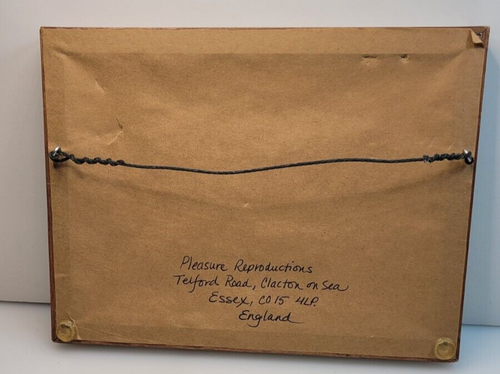 Pleasure Reproductions
Telford Road, Clacton on Sea
Essex, CO15 4LP.
England